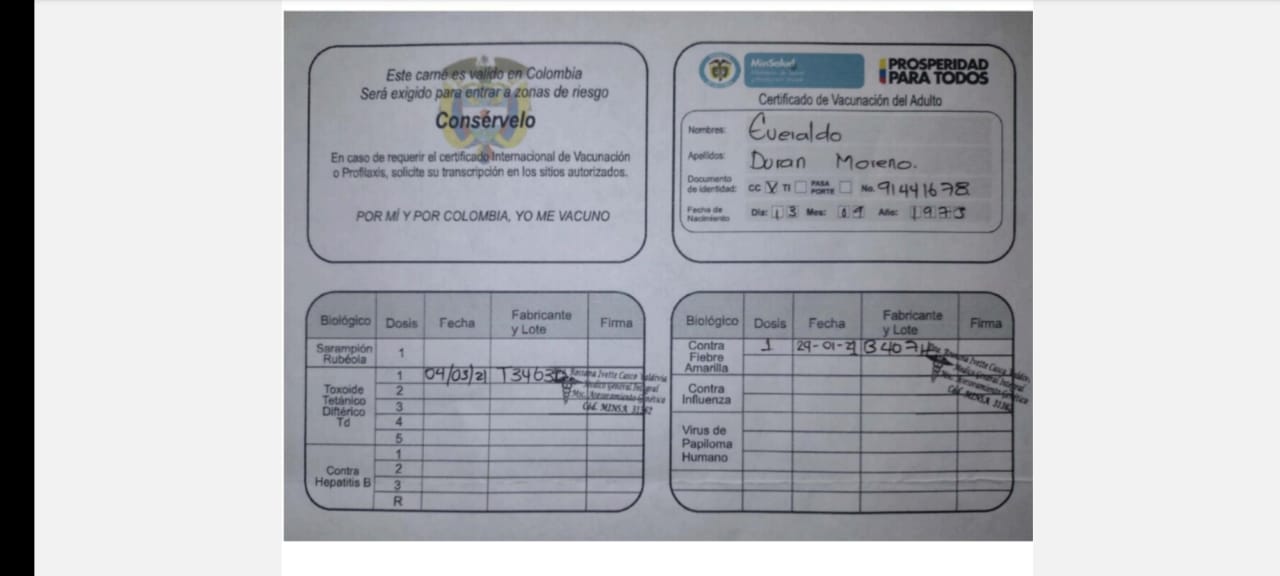 Este carné es valido en Colombia
Será exigido para entrar a zonas de riesgo
Consérvelo
En caso de requerir el certificado Internacional de Vacunación
o Profilaxis, solicite su transcripción en los sitios autorizados.
POR MÍ Y POR COLOMBIA, YO ME VACUNO
MinSalud
PROSPERIDAD
PARA TODOS
Certificado de Vacunación del Adulto
Nombres: Everaldo
Apellidos: Duran Moreno.
Documento de identidad: CC X TI PASAPORTE No. 91441678
Fecha de Nacimiento Dia: 13 Mes: 09 Año: 1973
Biológico Dosis Fecha Fabricante y Lote Firma
Sarampión Rubéola 1
Toxoide Tetánico Diftérico Td
1 04/03/21
2
3
4
5
Contra Hepatitis B
1
2
3
R
Ivette Casco Valdivia
Médico General Integral
Msc. Asesoramiento Genético
Cód. MINSA 31362
Biológico Dosis Fecha Fabricante y Lote Firma
Contra Fiebre Amarilla 1 29-01-21
Ivette Casco Valdivia
Médico General Integral
Msc. Asesoramiento Genético
Cód. MINSA 31362
Contra Influenza
Virus de Papiloma Humano